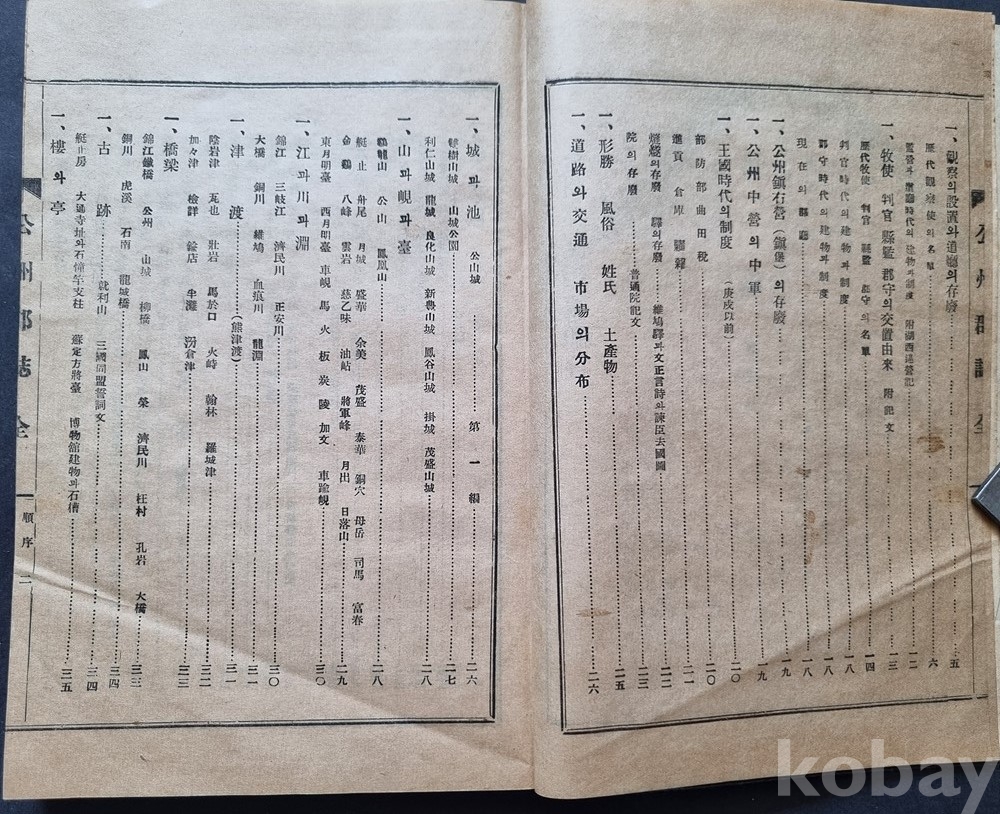 一、觀察의設置와道廳의存廢 五
歷代觀察使의名單 六
監營과廳時代의建物과制度 附湖西巡營記 一二
一、牧使 判官 縣監 郡守의交置由來 附記文 一三
歷代牧使 判官 縣監 郡守의名單 一四
判官時代의建物과制度 一八
郡守時代의建物과制度 一八
現在의縣廳 一八
一、公州鎭右營(鎭堡)의存廢 一九
一、公州中營의中軍 一九
一、王國時代의制度 (庚戌以前) 二〇
部防部曲田稅 二〇
進貢 倉庫 二一
烽燧의存廢 驛의存廢 維鳩驛과文正言詩와諫臣去國圖 二二
院의存廢 普通院記文 二三
一、形勝 風俗 姓氏 土產物 二五
一、道路와交通 市場의分布 二六
公州郡誌 全
第一編
一、城과池 公山城 二六
雙樹山城 山城公園 二七
利仁山城 龍城 良化山城 新豊山城 鳳谷山城 掛城 茂盛山城 二八
一、山과峴과臺
鷄龍山 公山 鳳凰山 二八
艇止 舟尾 月城 盛華 余美 茂盛 泰華 銅穴 母岳 司馬 富春
金鷄 八峰 雲岩 慈乙味 油岾 將軍峰 月出 日落山 二九
東月明臺 西月明臺 車峴 馬 火 板 炭 陵 加文 車踰峴 三〇
一、江과川과淵
錦江 三岐江 濟民川 正安川 三〇
大橋 銅川 維鳩 血痕川 龍淵 三一
一、津 渡 (熊津渡) 三一
陰岩津 瓦也 壯岩 馬於口 火峙 翰林 羅城津 三二
加々津 檢詳 鎰店 半灘 汾倉津 三三
一、橋梁
錦江鐵橋 公州 山城 柳橋 鳳山 榮 濟民川 枉村 孔岩 大橋 三三
銅川 虎溪 石南 龍城橋 三四
一、古 跡 就利山 三國同盟誓詞文 三四
艇止房 大通寺址와石幢竿支柱 蘇定方將臺 博物館建物과石槽 三五
一、樓와亭
公州郡誌 全 順序 二
kobay